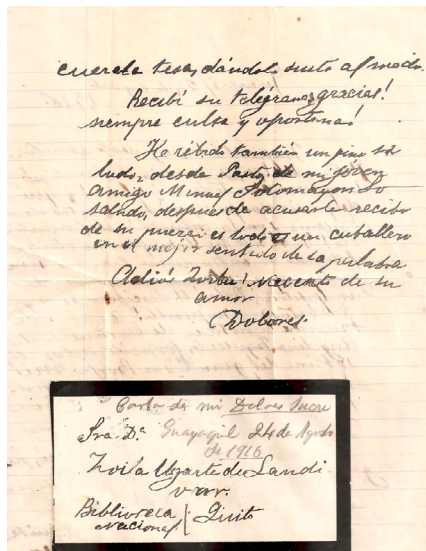 Recibí su telégrama, gracias!
siempre culta y oportuna!
He recibido también un fino sa
ludo, desde Pasto, de mi joven
amigo Manuel Sotomayor. Lo
saludo, despues de acusarle recibo
de su es todo un caballero
en el mejor sentido de la palabra
Adiós Zoila! Necesito de su
amor
Dolores.
Carta de mi Dolores Sucre
Guayaquil 24 de Agosto
de 1916
Sra. Da.
Zoila Ugarte de Landi
var.
Biblioteca
Nacional
Quito